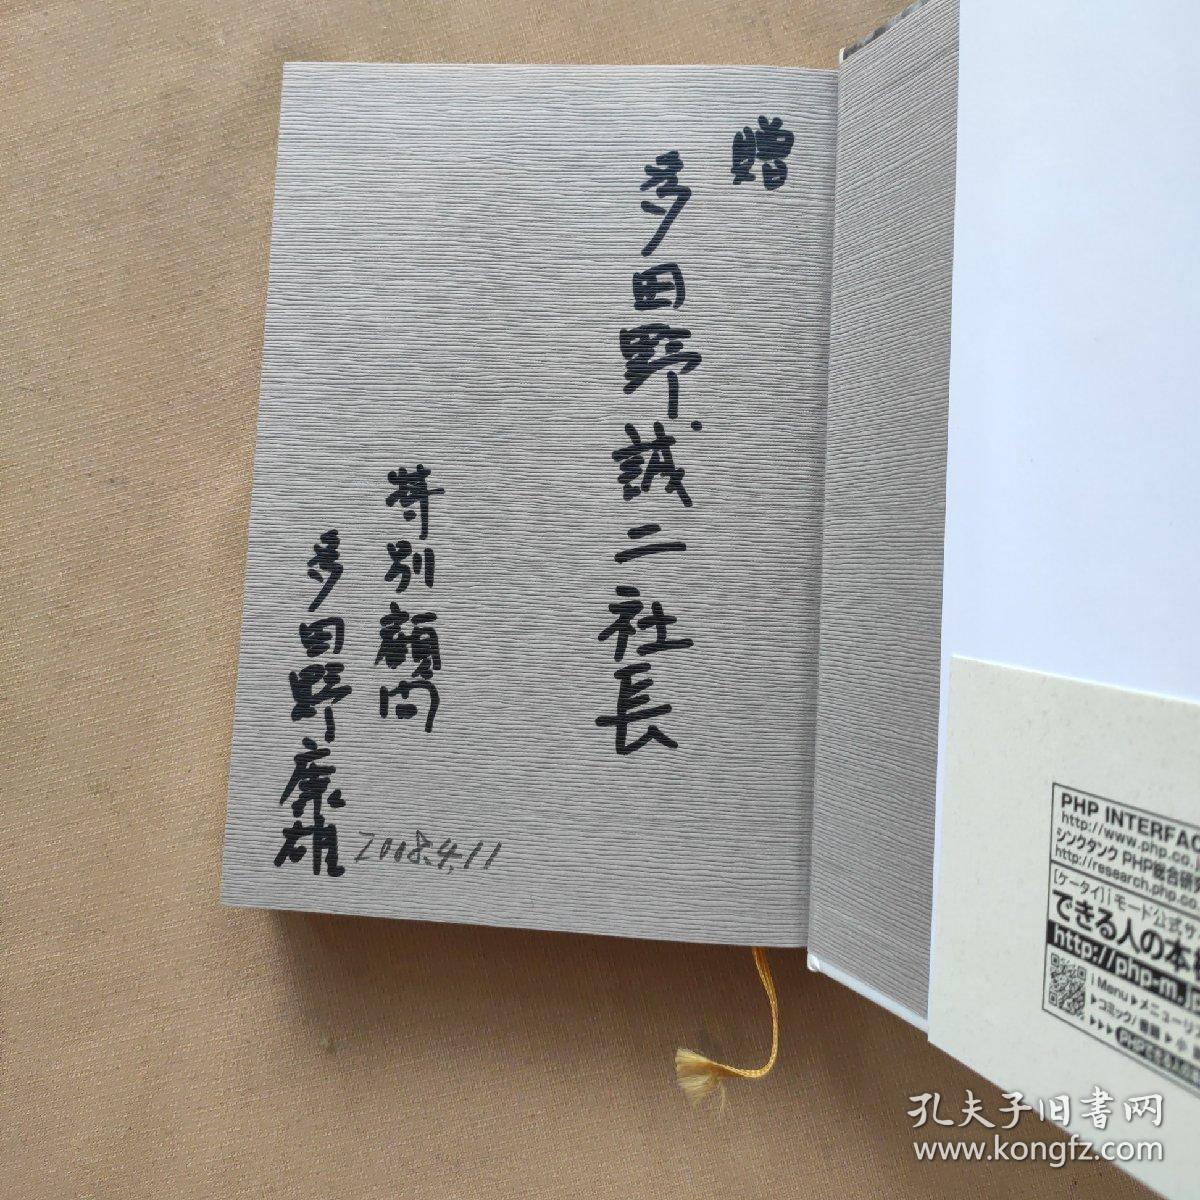 贈
多田野誠二社長
特別顧問
多田野康雄
2008.4.11
PHP INTERFAC
http://www.php.co.j
シンクタンク PHP総合研究
http://research.php.co
[ケータイ]iモード公式サ
できる人の本
http://php-m.j
i Menu▶メニューリ
▶コミック/書籍▶小
▶▶▶
孔夫子旧书网
www.kongfz.com